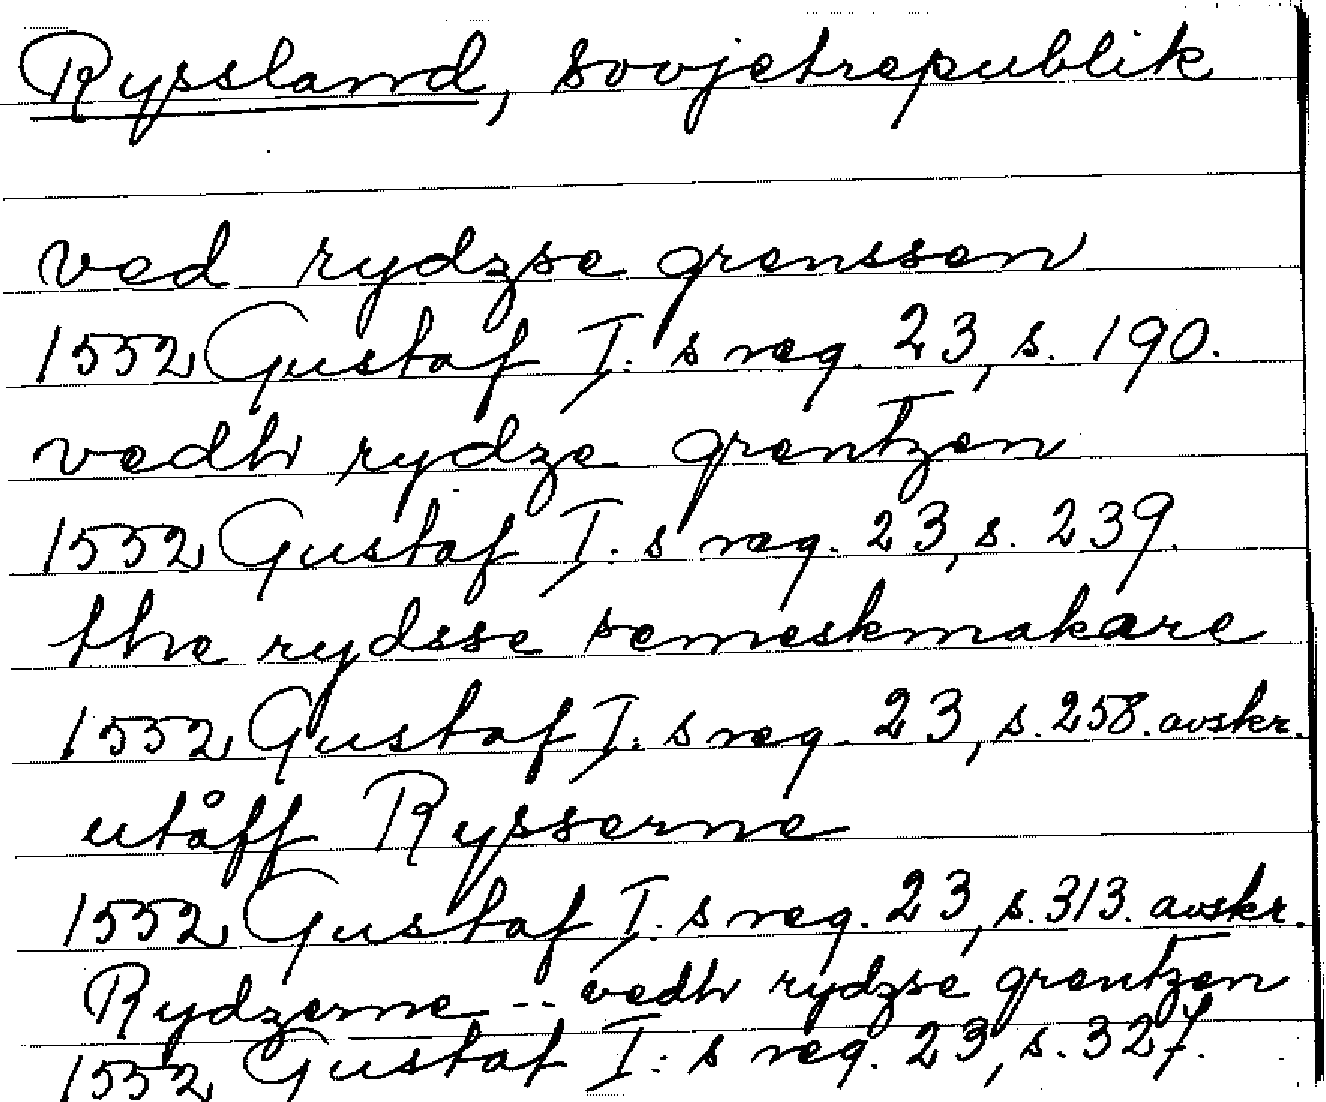 Ryssland, sovjetrepublik
ved rydzse grenssen
1552 Gustaf I: s reg. 23, s. 190.
vedh rydze grentzen
1552 Gustaf I. s reg. 23, s. 239.
the rydsse semeskmakare
1552 Gustaf I: s reg. 23, s. 258. avskr.
utåff Rysserne
1552 Gustaf I. s reg. 23, s. 313. avskr.
Rydzerne -- vedh rydzse grentzen
1552 Gustaf I: s reg. 23, s. 327.